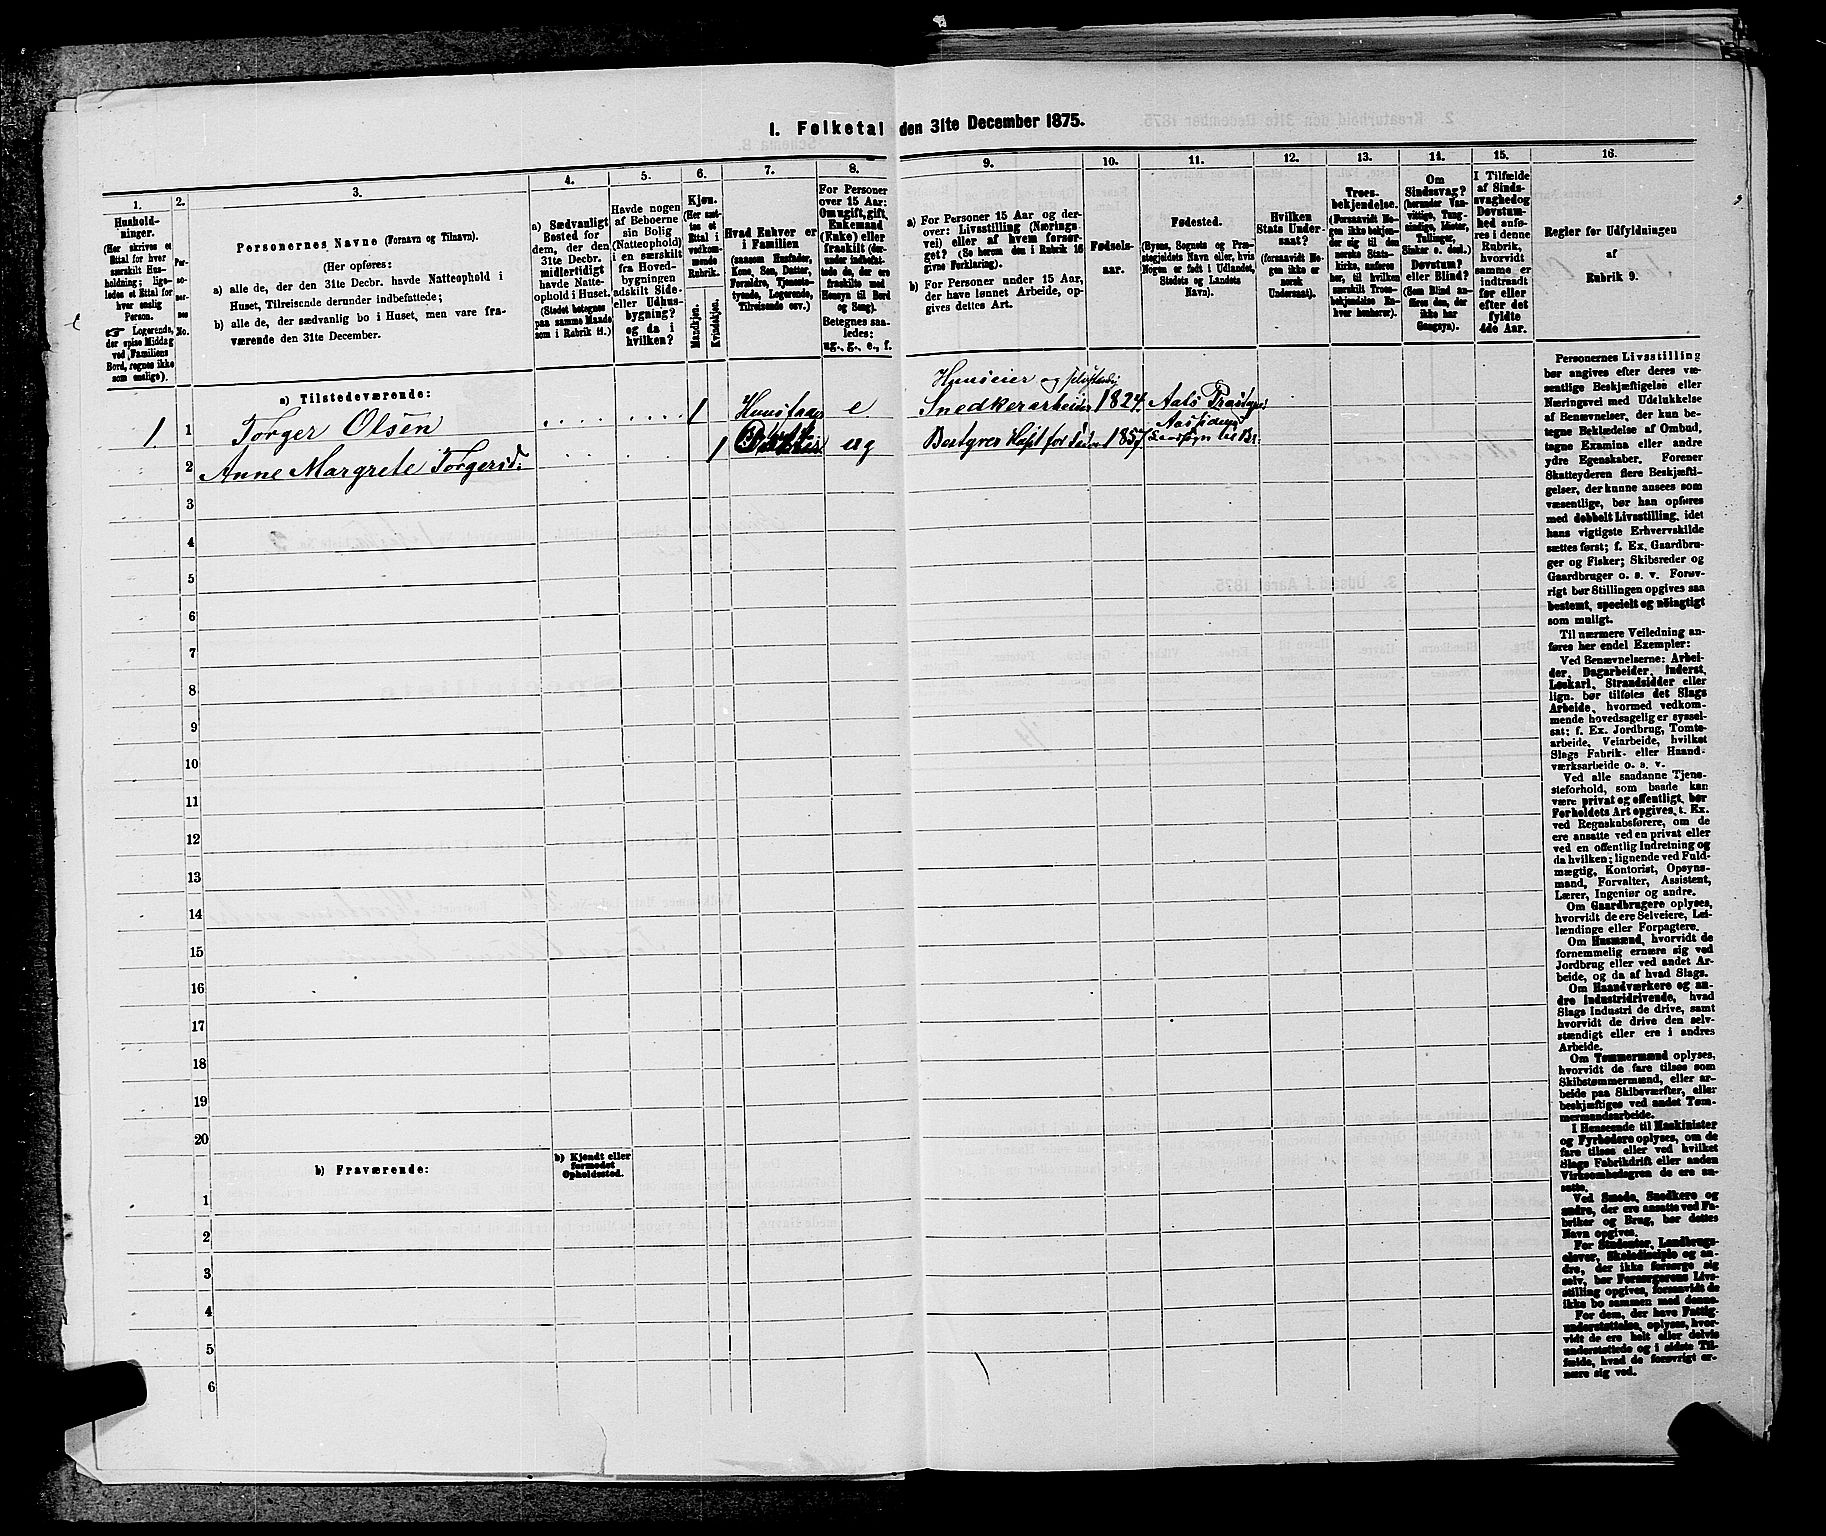 1. Folketal den 31te December 1875.
1.
Hushold-
ninger.
(Her skrives et
Ettal for hver
særskilt Hus-
holdning; lige-
ledes et Ettal for
hver enslig
Person.
Logerende,
der spise Middag
ved Familiens
Bord, regnes ikke
som enslige).
2.
Per-
so-
ner-
nes
No.
3.
Personernes Navne (Fornavn og Tilnavn).
(Her opføres:
a) alle de, der den 31te Decbr. havde Natteophold i
Huset, Tilreisende derunder indbefattede;
b) alle de, der sædvanlig bo i Huset, men vare fra-
værende den 31te December.
4.
a) Sædvanligt
Bosted for
dem, der den
31te Decbr.
midlertidigt
havde Natte-
ophold i Huset.
(Stedet betegnes
paa samme Maade
som i Rubrik 11.)
5.
Havde nogen
af Beboerne
sin Bolig
(Natteophold)
i en særskilt
fra Hoved-
bygningen
adskilt Side-
eller Udhus-
bygning?
og da i
hvilken?
6.
Kjøn.
(Her sæt-
tes et
Ettal i
vedkom-
mende
Rubrik.
Mandkjøn.
Kvindekjøn.
7.
Hvad Enhver er
i Familien
(saasom Husfader,
Kone, Søn, Datter,
Forældre, Tjeneste-
tyende, Logerende,
Tilreisende osv.)
8.
For Personer
over 15 Aar:
Om ugift, gift,
Enkemand
(Enke) eller
fraskilt (der-
under indbefat-
tede de, der ere
fraskilte med
Hensyn til Bord
og Seng).
Betegnes saa-
ledes:
ug., g., e., f.
9.
a) For Personer 15 Aar og der-
over: Livsstilling (Nærings-
vei) eller af hvem forsør-
get? (Se herom den i Rubrik 16
givne Forklaring).
b) For Personer under 15 Aar,
der have lønnet Arbeide, op-
gives dettes Art.
10.
Fødsels-
aar.
11.
Fødested.
(Byens, Sognets og Præ-
stegjeldets Navn eller, hvis
Nogen er født i Udlandet,
Stedets og Landets
Navn).
12.
Hvilken
Stats Under-
saat?
(forsaavidt No-
gen ikke er
norsk
Undersaat).
13.
Troes-
bekjendelse.
(Forsaavidt No-
gen ikke bekjen-
der sig til den
norske Stats-
kirke, anføres
her, til hvilken
særskilt Troes-
bekjendelse En-
hver henhører).
14.
Om
Sindssvag?
(herunder Van-
vittige, Tung-
sindige, Idioter,
Tullinger,
Sinker o. desl.)
Døvstum?
eller Blind?
(Som Blind an-
føres den, der
ikke har
Gangsyn).
15.
I Tilfælde
af Sinds-
svaghed og
Døvstum-
hed anfø-
res i denne
Rubrik,
hvorvidt
samme er
indtraadt
før eller
efter det
fyldte
4de Aar.
16.
Regler for Udfyldningen
af
Rubrik 9.
a) Tilstedeværende:
1 1 Torger Olsen 1 e. Huseier og
Snedkerarbeider 1824.
2 Anne Margrete Torgersd: 1 ug Bestyrer 1857.
3
4
5
6
7
8
9
10
11
12
13
14
15
16
17
18
19
20
b) Fraværende:
b) Kjendt eller
formodet
Opholdssted.
1
2
3
4
5
6
Personernes Livsstilling
bør angives efter deres væ-
sentlige Beskjæftigelse eller
Næringsvei med Udelukkelse
af Benævnelser, der kun be-
tegne Beklædelse af Ombud,
tagne Examina eller andre
ydre Egenskaber. Forener
Skatteyderen flere Beskjæfti-
gelser, der kunne ansees som
væsentlige, bør han opføres
med dobbelt Livsstilling, idet
hans vigtigste Erhvervskilde
sættes først; f. Ex. Gaardbru-
ger og Fisker; Skibsreder og
Gaardbruger o. s. v. Forøv-
rigt bør Stillingen opgives saa
bestemt, specielt og nøiagtigt
som muligt.
Til nærmere Veiledning an-
føres her endel Exempler:
Ved Benævnelserne: Arbei-
der, Dagarbeider, Inderst,
Løskarl, Strandsidder eller
lign. bør tilføies det Slags
Arbeide, hvormed vedkom-
mende hovedsagelig er syssel-
sat; f. Ex. Jordbrug, Tomte-
arbeide, Veiarbeide, hvilket
Slags Fabrik- eller Haand-
værksarbeide o. s. v.
Ved alle saadanne Tjene-
steforhold, som baade kan
være privat og offentligt, bør
Forholdets Art opgives, t. Ex.
ved Regnskabsførere, om de
ere ansatte ved en privat eller
ved en offentlig Indretning og
da hvilken; lignende ved Fuld-
mægtig, Kontorist, Opsyns-
mand, Forvalter, Assistent,
Lærer, Ingeniør og andre.
Om Gaardbrugere oplyses,
hvorvidt de ere Selveiere, Lei-
lændinge eller Forpagtere.
Om Husmænd, hvorvidt de
fornemmelig ernære sig ved
Jordbrug eller ved andet Ar-
beide, og da af hvad Slags.
Om Haandværkere og an-
dre Industridrivende, hvad
Slags Industri de drive, samt
hvorvidt de drive den selv-
stændigt eller ere i andres
Arbeide.
Om Tømmermænd oplyses,
hvorvidt de fare tilsøs som
Skibstømmermænd, eller ar-
beide paa Skibsværfter, eller
beskjæftiges ved andet Tøm-
mermandsarbeide.
I Henseende til Maskinister
og Fyrbødere oplyses, om de
fare tilsøs eller ved hvilket
Slags Fabrikdrift eller anden
Virksomhedsgren de ere an-
satte.
Ved Smede, Snedkere og
andre, der ere ansatte ved Fa-
briker og Brug, bør dettes
Navn opgives.
For Studenter, Landbrugs-
elever, Skoledisciple og an-
dre, der ikke forsørge sig
selv, bør Forsørgerens Livs-
stilling opgives, forsaavidt de
ikke bo sammen med denne.
For dem, der have Fattig-
understøttelse, oplyses, hvor-
vidt de ere helt eller delvis
understøttede og i sidste Til-
fælde, hvad de forøvrigt er-
nære sig ved.